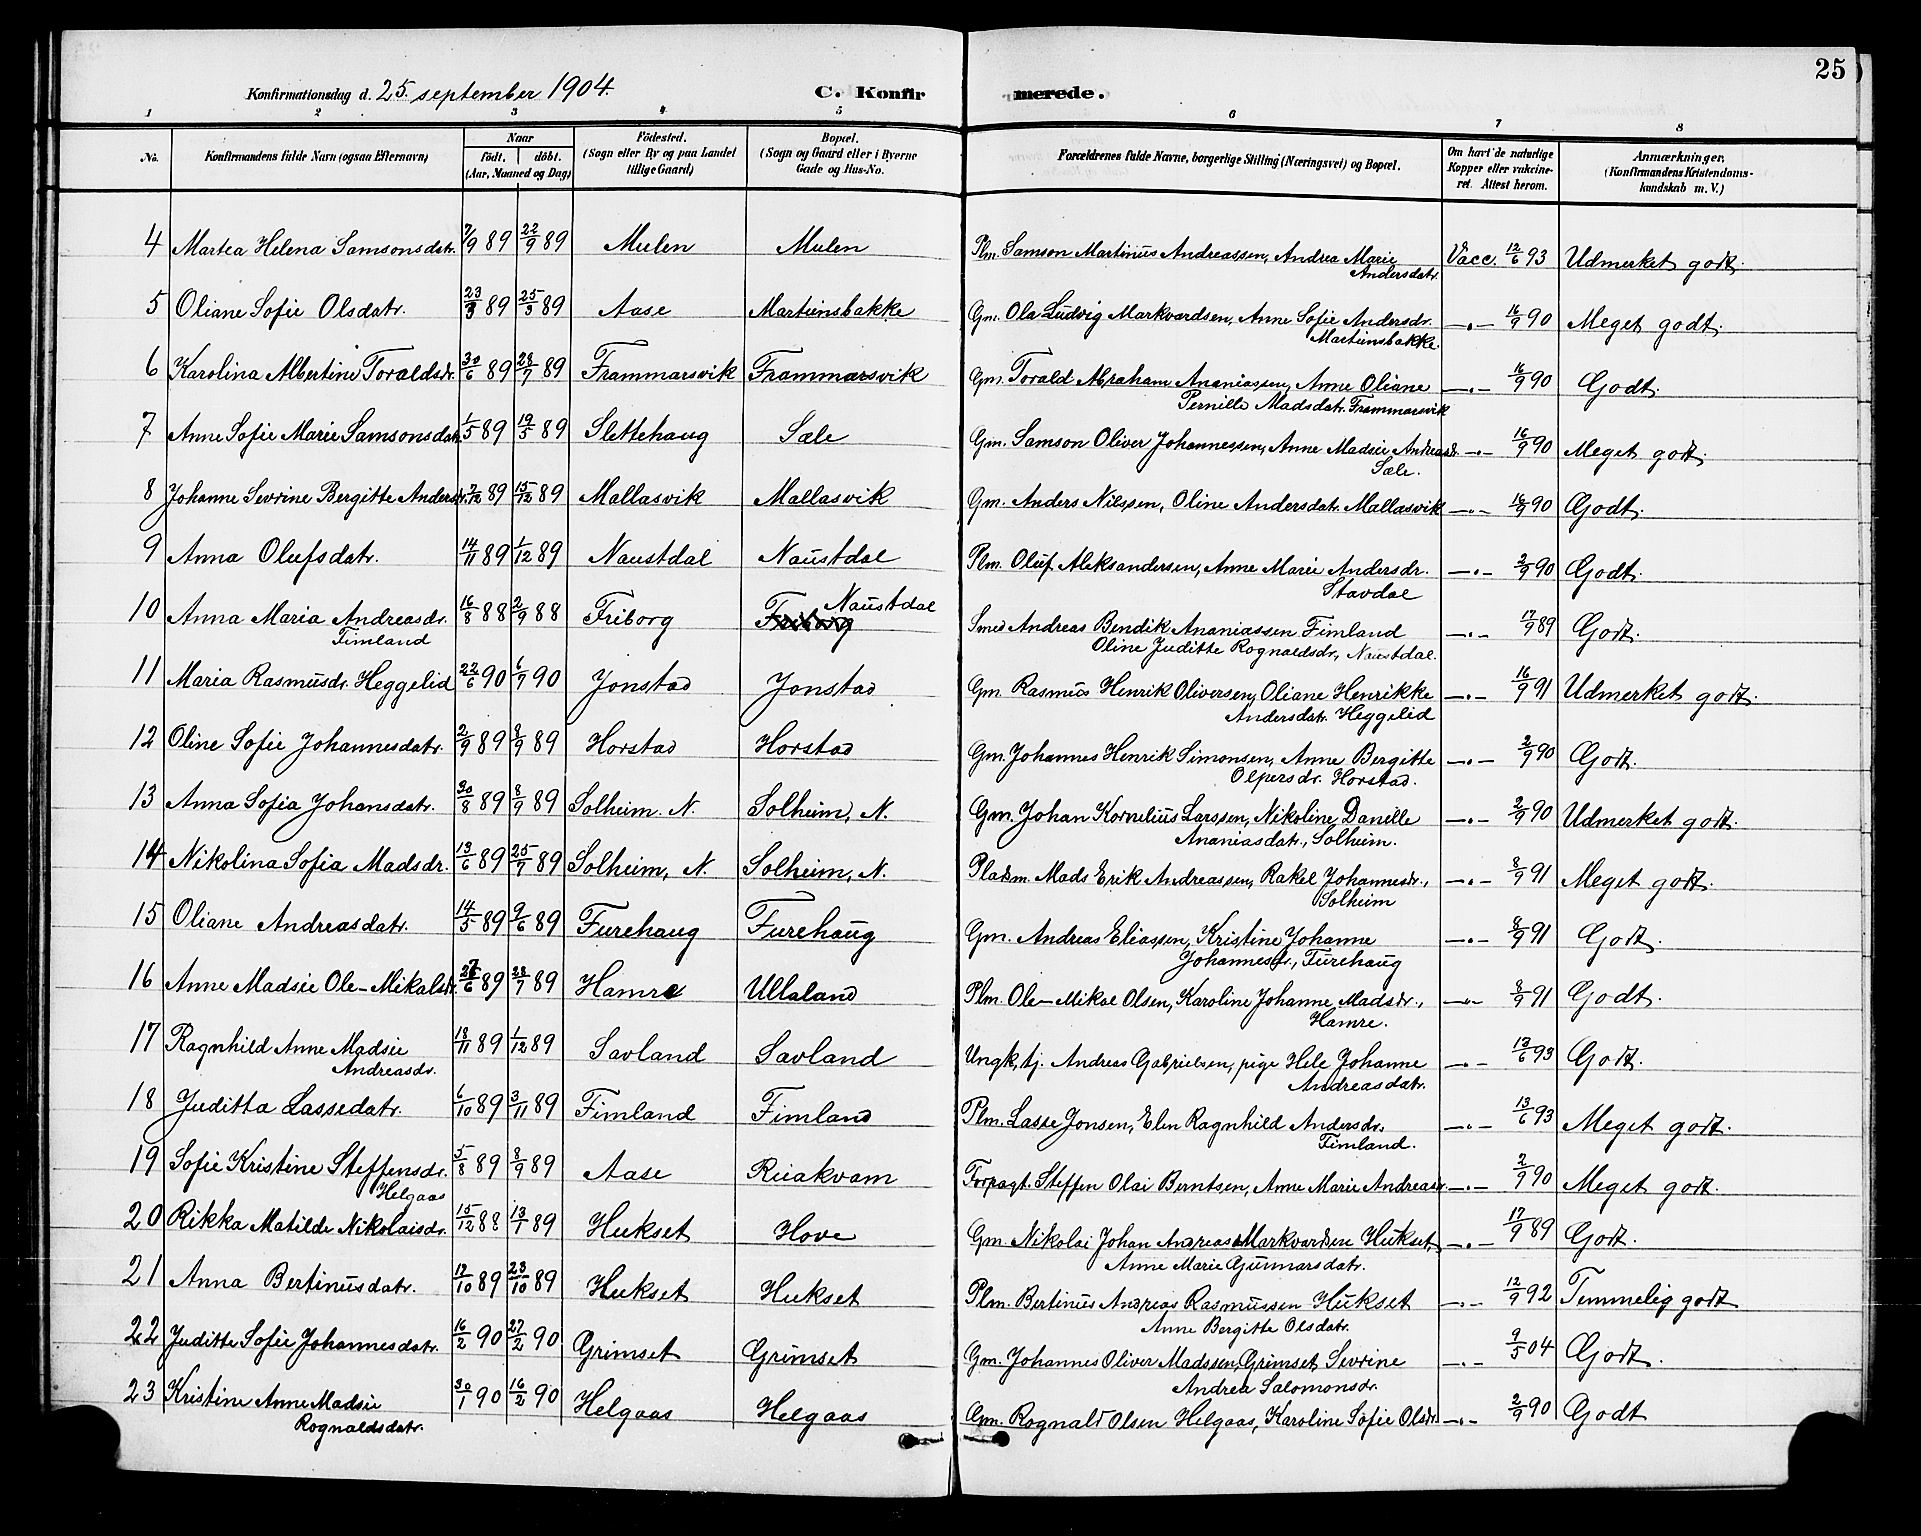 25
Konfirmationsdag d. 25. september 1904. C. Konfirmerede.
1 2 3 4 5 6 7 8
No. Konfirmandens fulde Navn (ogsaa Efternavn) Naar født. døbt. (Aar, Maaned og Dag) Fødested. (Sogn eller By og paa Landet tillige Gaard) Bopæl. (Sogn og Gaard eller i Byerne Gade og Hus-No. Forældrenes fulde Navne, borgerlige Stilling (Næringsvei) og Bopæl. Om havt de naturlige Kopper eller vaccineret. Attest herom. Anmærkninger. (Konfirmandens Kristendomskundskab m. V.)
4 Martea Helena Samsonsdatr. 7/9 89 22/9 89 Mulen Mulen Plm. Samson Martinus Andreassen, Andrea Marie Andersdatr. Vacc. 12/6 93 Udmerket godt.
5 Oliane Sofie Olsdatr. 23/3 89 25/3 89 Aase Martinsbakke Gm. Ola Ludvig Markvardsen, Anne Sofie Andersdr. Martinsbakke. —"— 16/9 90 Meget godt.
6 Karolina Albertine Toraldsdr. 30/6 89 28/7 89 Frammarsvik Frammarsvik Gm. Torald Abraham Ananiassen, Anne Oliane Pernille Madsdatr. Frammarsvik —"— 16/9 90 Godt.
7 Anne Sofie Marie Samsonsdatr. 1/5 89 19/5 89 Slettehaug Sæle Gm. Samson Oliver Johannessen, Anne Madsie Andreasd. Sæle. —"— 16/9 90 Meget godt.
8 Johanne Sevrine Bergitte Andersdr. 7/12 89 15/12 89 Mallasvik Mallasvik Gm. Anders Nilssen, Oline Andersdatr. Mallasvik —"— 16/9 90 Godt.
9 Anna Olufsdatr. 14/11 89 1/12 89 Naustdal Naustdal Plm. Oluf Aleksandersen, Anne Marie Andersdr. Stavdal —"— 2/9 90 Godt.
10 Anna Maria Andreasdr. Fimland 16/8 88 2/9 88 Friborg Friborg Naustdal Smed Andreas Bendik Ananiassen Fimland Oline Juditte Rognaldsdr., Naustdal. —"— 17/9 89 Godt.
11 Maria Rasmusdr. Heggelid 22/6 90 6/7 90 Jonstad Jonstad Gm. Rasmus Henrik Oliversen, Oliane Henrikke Andersdatr. Heggelid —"— 16/9 91 Udmerket godt.
12 Oline Sofie Johannesdatr. 2/9 89 8/9 89 Horstad Horstad Gm. Johannes Henrik Simonsen, Anne Bergitte Olpersdr. Horstad. —"— 2/9 90 Godt.
13 Anna Sofia Johansdatr. 30/8 89 8/9 89 Solheim. N. Solheim, N. Gm. Johan Kornelius Larssen, Nikoline Danielle Ananiasdatr., Solheim. —"— 2/9 90 Udmerket godt.
14 Nikolina Sofia Madsdr. 13/6 89 25/7 89 Solheim, N. Solheim, N. Pladsm. Mads Erik Andreassen, Rakel Johannesdr., Solheim —"— 8/9 91 Meget godt.
15 Oliane Andreasdatr. 14/5 89 9/6 89 Furehaug Furehaug Gm. Andreas Eliassen, Kristine Johanne Johannesdr., Furehaug —"— 8/9 91 Godt.
16 Anne Madsie Ole-Mikalsdr. 27/6 89 28/7 89 Hamre Ullaland Plm. Ole-Mikal Olsen, Karoline Johanne Madsdr., Hamre. —"— 8/9 91 Godt.
17 Ragnhild Anne Madsie Andreasdr. 18/11 89 1/12 89 Savland Savland Ungk, tj. Andreas Gabrielsen, pige Hele Johanne Andreasdatr. —"— 13/6 93 Godt.
18 Juditta Lassedatr. 6/10 89 3/11 89 Fimland Fimland Plm. Lasse Jonsen, Elen Ragnhild Andersdr. Fimland. —"— 13/6 93 Meget godt.
19 Sofie Kristine Steffensdr. Helgaas 5/8 89 8/9 89 Aase Ruakvam Forpagt. Steffen Olai Berntsen, Anne Marie Andreasdr. —"— 2/9 90 Meget godt.
20 Rikka Matilde Nikolaisdr. 15/12 88 13/1 89 Hukset Hove Gm. Nikolai Johan Andreas Markvardsen Hukset, Anne Marie Gunnarsdatr. —"— 17/9 89 Godt.
21 Anna Bertinusdatr. 12/10 89 23/10 89 Hukset Hukset Plm. Bertinus Andreas Rasmussen Hukset Anne Bergitte Olsdatr. —"— 12/9 92 Temmelig godt
22 Juditte Sofie Johannesdatr. 16/2 90 27/2 90 Grimset Grimset Gm. Johannes Oliver Madssen, Grimset, Sevrine Andrea Salomonsdr. —"— 9/5 04 Godt.
23 Kristine Anne Madsie Rognaldsdatr. 30/1 90 16/2 90 Helgaas Helgaas Gm. Rognald Olsen Helgaas, Karoline Sofie Olsdr. —"— 2/9 90 Godt